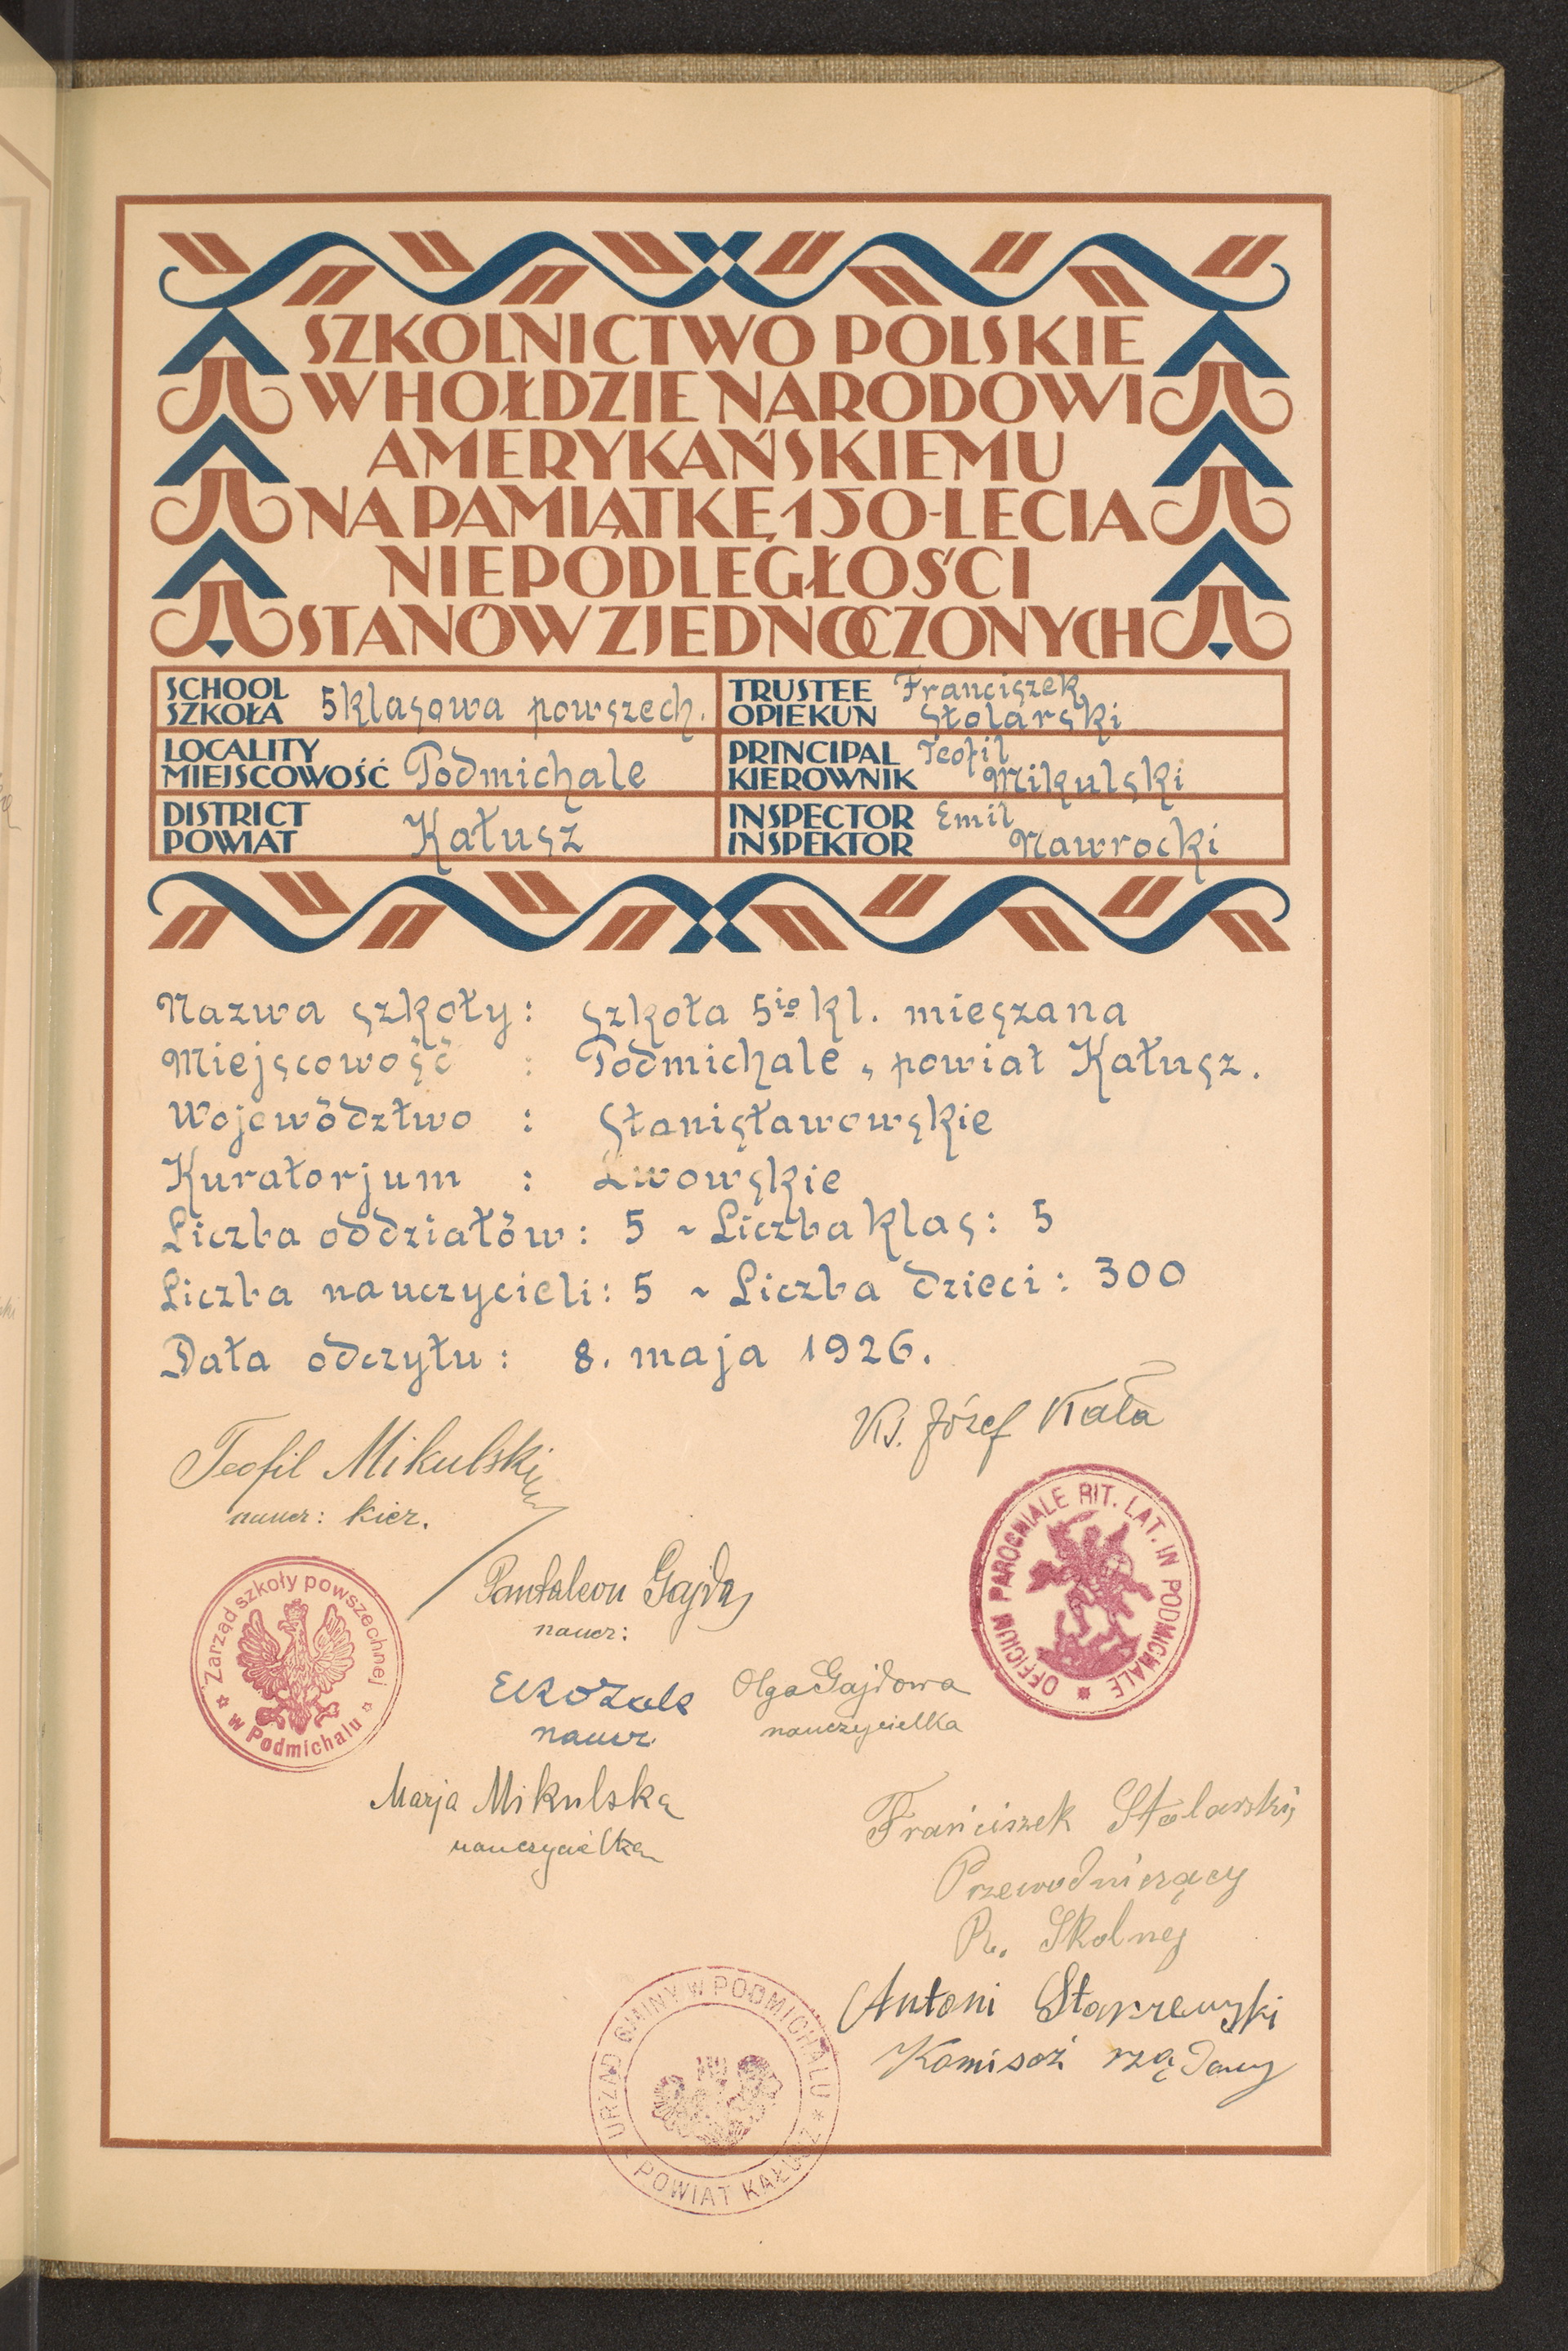 SZKOLNICTWO POLSKIE
W HOŁDZIE NARODOWI
AMERYKAŃSKIEMU
NA PAMIĄTKĘ 150-LECIA
NIEPODLEGŁOŚCI
STANÓW ZJEDNOCZONYCH
SCHOOL
SZKOŁA
5klasowa powszech.
TRUSTEE
OPIEKUN
Franciszek
Stolarski
LOCALITY
MIEJSCOWOŚĆ
Podmichale
PRINCIPAL
KIEROWNIK
Teofil
Mikulski
DISTRICT
POWIAT
Kałusz
INSPECTOR
INSPEKTOR
Emil
Nawrocki
Nazwa szkoły: szkoła 5io kl. mieszana
Miejscowość : Podmichale, powiat Kałusz.
Województwo : Stanisławowskie
Kuratorjum : Lwowskie
Liczba oddziałów: 5 ~ Liczba klas: 5
Liczba nauczycieli: 5 ~ Liczba dzieci: 300
Data odczytu: 8. maja 1926.
Ks. Józef Kała
Teofil Mikulski
naucz: kier.
OFFICIUM PAROCHIALE RIT. LAT. IN PODMICHALE
Zarząd szkoły powszechnej
w Podmichalu
Pantaleon Gajda
naucz:
Olga Gajdowa
nauczycielka
naucz
Marja Mikulska
nauczycielka
Franciszek Stolarski
Przewodniczący
R. Skolnej
Antoni
Komisaż rządowy
URZĄD GMINY W PODMICHALU
POWIAT KAŁUSZ